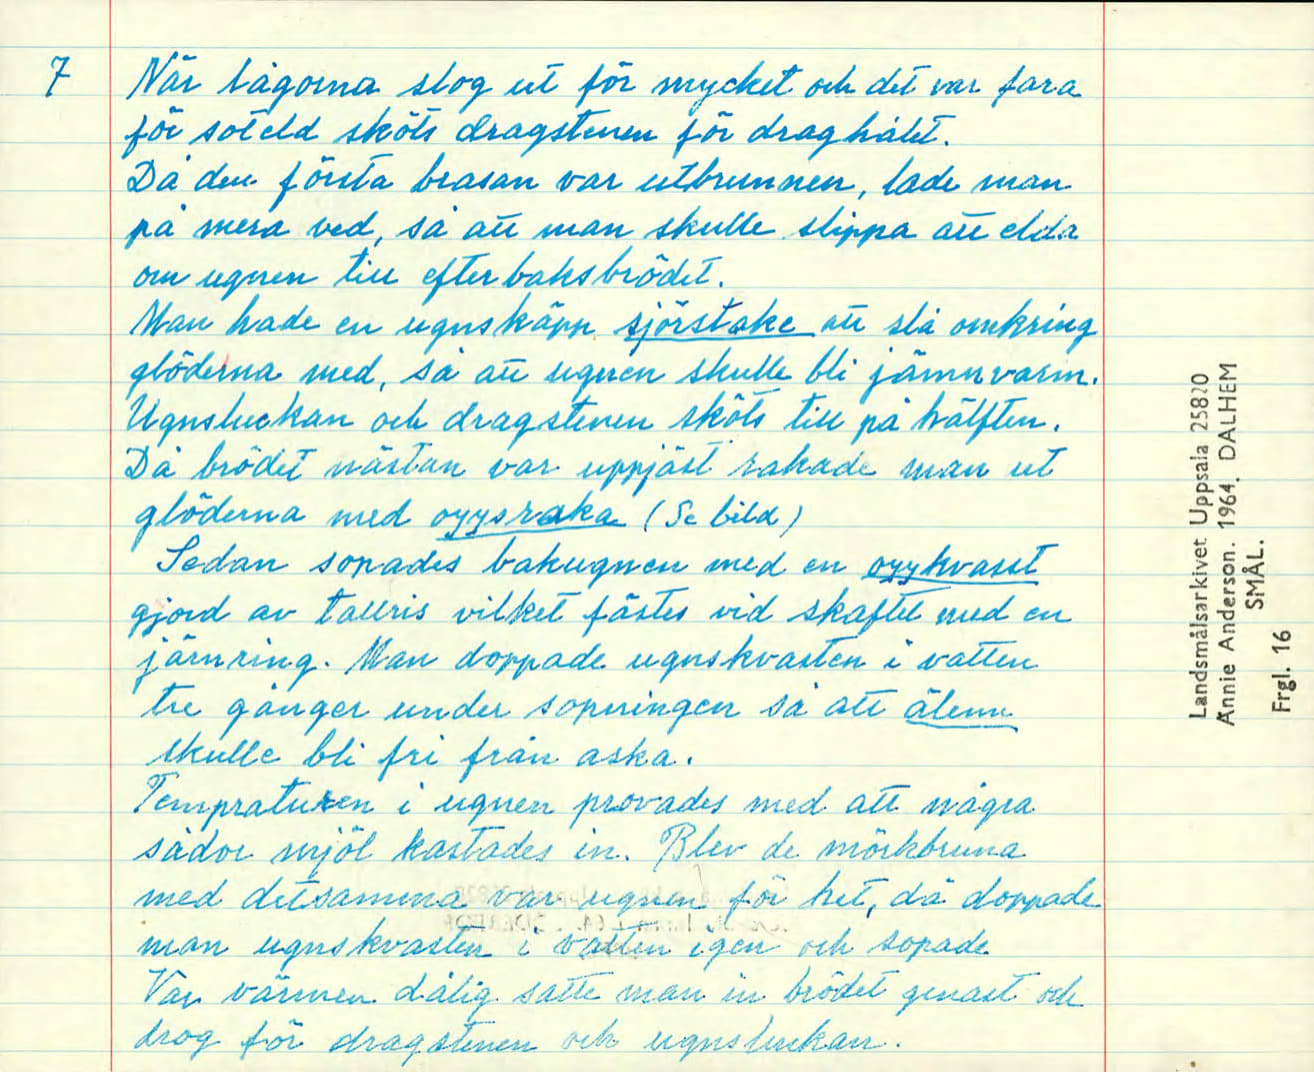 7 När lågorna slog ut för mycket och det var fara
för soteld sköts dragstenen för draghålet.
Då den första brasan var utbrunnen, lade man
på mera ved, så att man skulle slippa att elda
om ugnen till efterbaksbrödet.
Man hade en ugnskäpp sjörstake att slå omkring
glöderna med, så att ugnen skulle bli jämnvarm.
Ugnsluckan och dragstenen sköts till på hälften.
Då brödet nästan var uppjäst rakade man ut
glöderna med oyysraka (Se bild)
Sedan sopades bakugnen med en oyykvasst
gjord av tallris vilket fästes vid skaftet med en
järnring. Man doppade ugnskvasten i vatten
tre gånger under sopningen så att älenn
skulle bli fri från aska.
Tempraturen i ugnen provades med att några
sådor mjöl kastades in. Blev de mörkbruna
med detsamma var ugnen för het, då doppade
man ugnskvasten i vatten igen och sopade
Var värmen dålig satte man in brödet genast och
drog för dragstenen och ugnsluckan.
Landsmålsarkivet Uppsala 25820
Annie Anderson. 1964. DALHEM
SMÅL.
Frgl. 16